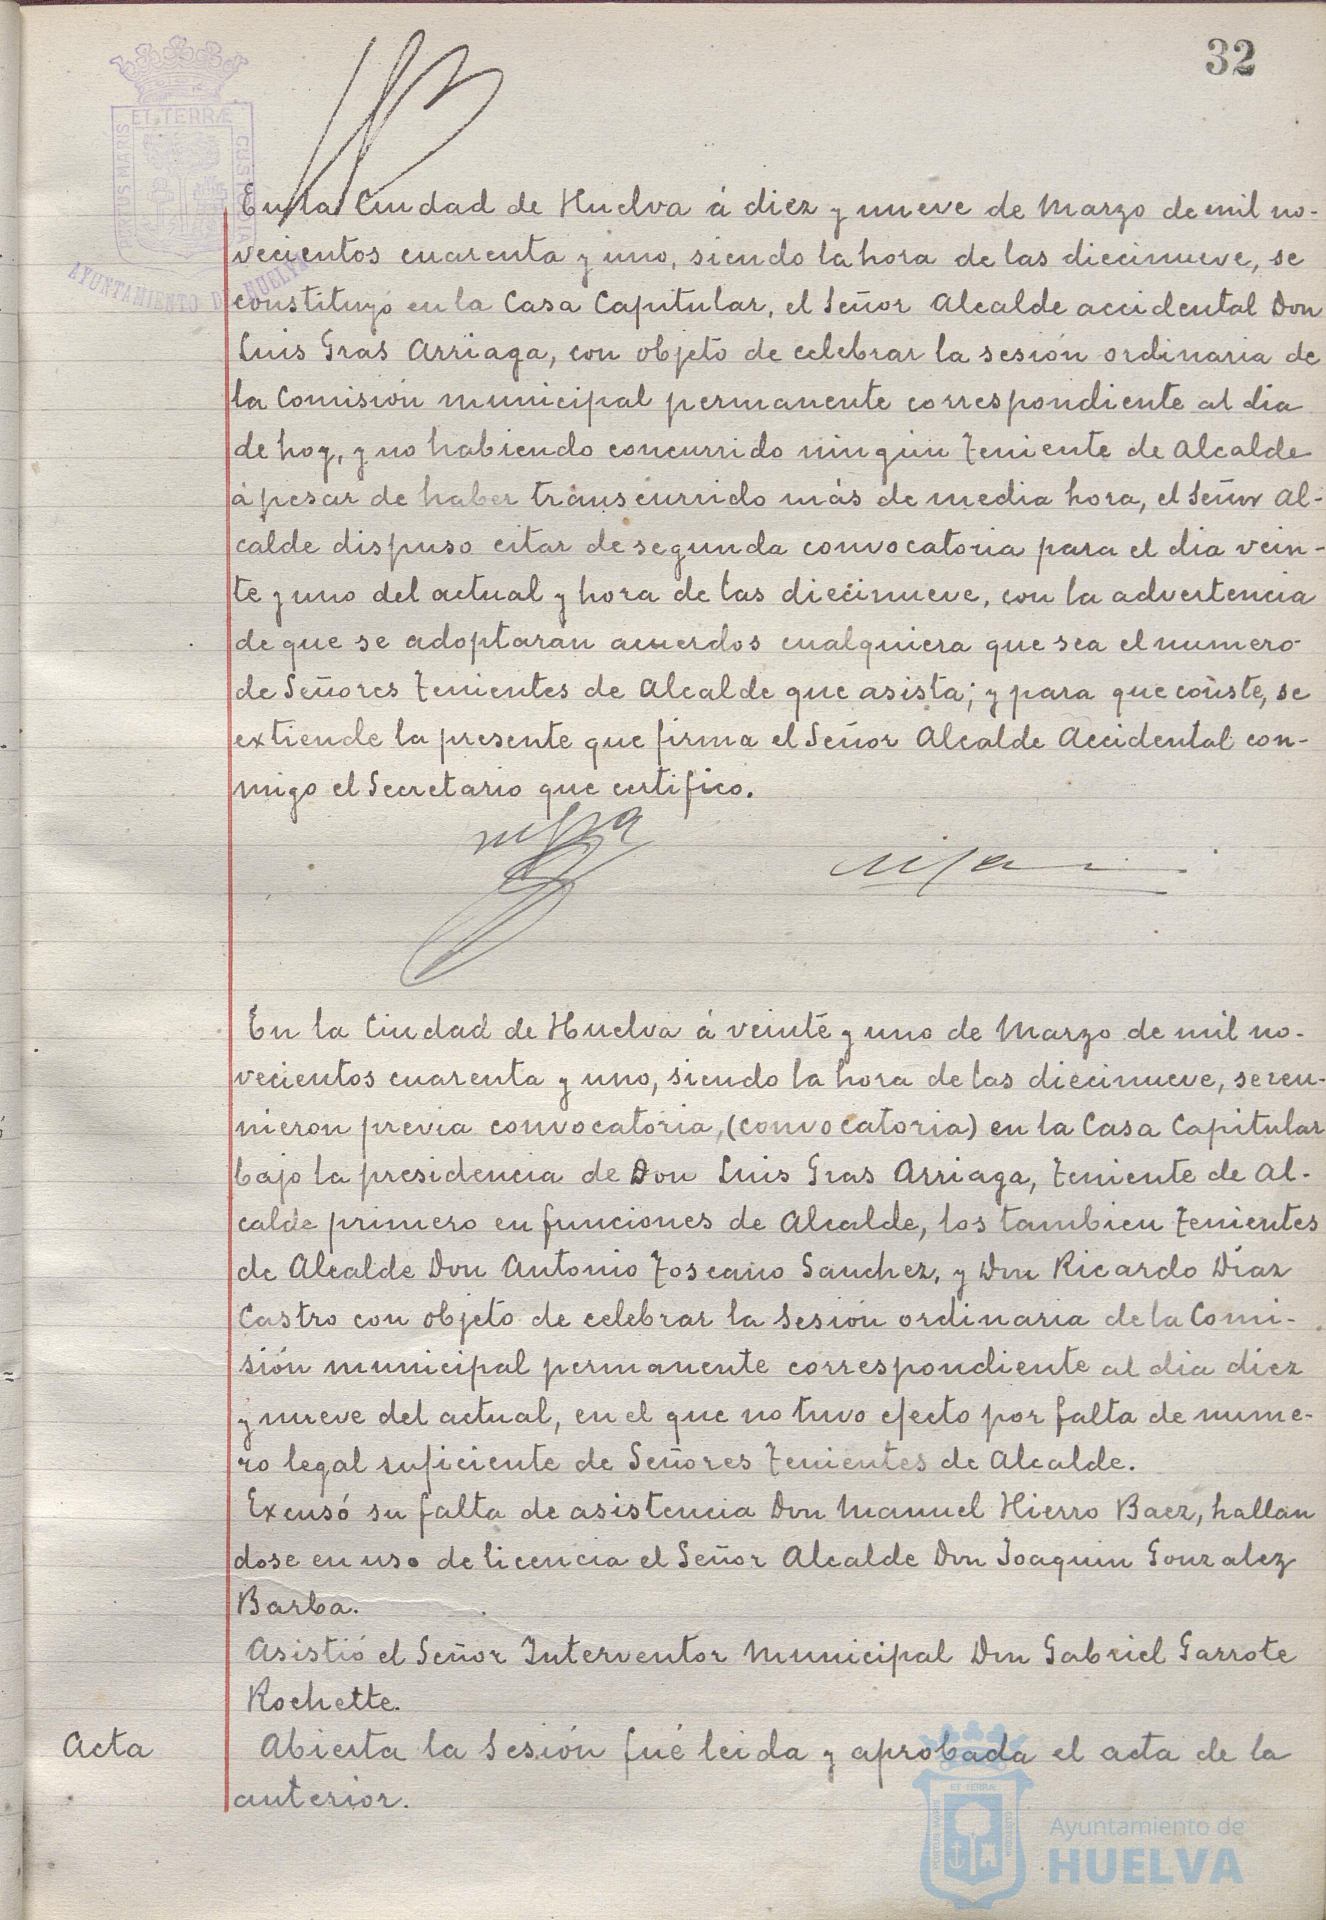 32
PORTUS MARIS ET TERRÆ CUSTODIA
AYUNTAMIENTO DE HUELVA
En la Ciudad de Huelva á diez y nueve de Marzo de mil no-
vecientos cuarenta y uno, siendo la hora de las diecinueve, se
constituyó en la Casa Capitular, el Señor Alcalde accidental Don
Luis Gras Arriaga, con objeto de celebrar la sesión ordinaria de
la Comisión municipal permanente correspondiente al dia
de hoy, y no habiendo concurrido ningún Teniente de Alcalde
á pesar de haber transcurrido más de media hora, el Señor Al-
calde dispuso citar de segunda convocatoria para el dia vein-
te y uno del actual y hora de las diecinueve, con la advertencia
de que se adoptarán acuerdos cualquiera que sea el numero
de Señores Tenientes de Alcalde que asista; y para que conste, se
extiende la presente que firma el Señor Alcalde Accidental con-
migo el Secretario que certifico.
En la Ciudad de Huelva á veinte y uno de Marzo de mil no-
vecientos cuarenta y uno, siendo la hora de las diecinueve, se reu-
nieron previa convocatoria, (convocatoria) en la Casa Capitular
bajo la presidencia de Don Luis Gras Arriaga, Teniente de Al-
calde primero en funciones de Alcalde, los tambien Tenientes
de Alcalde Don Antonio Toscano Sanchez, y Don Ricardo Diaz
Castro con objeto de celebrar la Sesión ordinaria de la Comi-
sión municipal permanente correspondiente al dia diez
y nueve del actual, en el que no tuvo efecto por falta de nume-
ro legal suficiente de Señores Tenientes de Alcalde.
Excusó su falta de asistencia Don Manuel Hierro Baez, hallan
dose en uso de licencia el Señor Alcalde Don Joaquin Gonzalez
Barba.
Asistió el Señor Interventor Municipal Don Gabriel Garrote
Rochette.
Acta
Abierta la Sesión fué leida y aprobada el acta de la
anterior.
PORTUS MARIS ET TERRÆ CUSTODIA
Ayuntamiento de
HUELVA